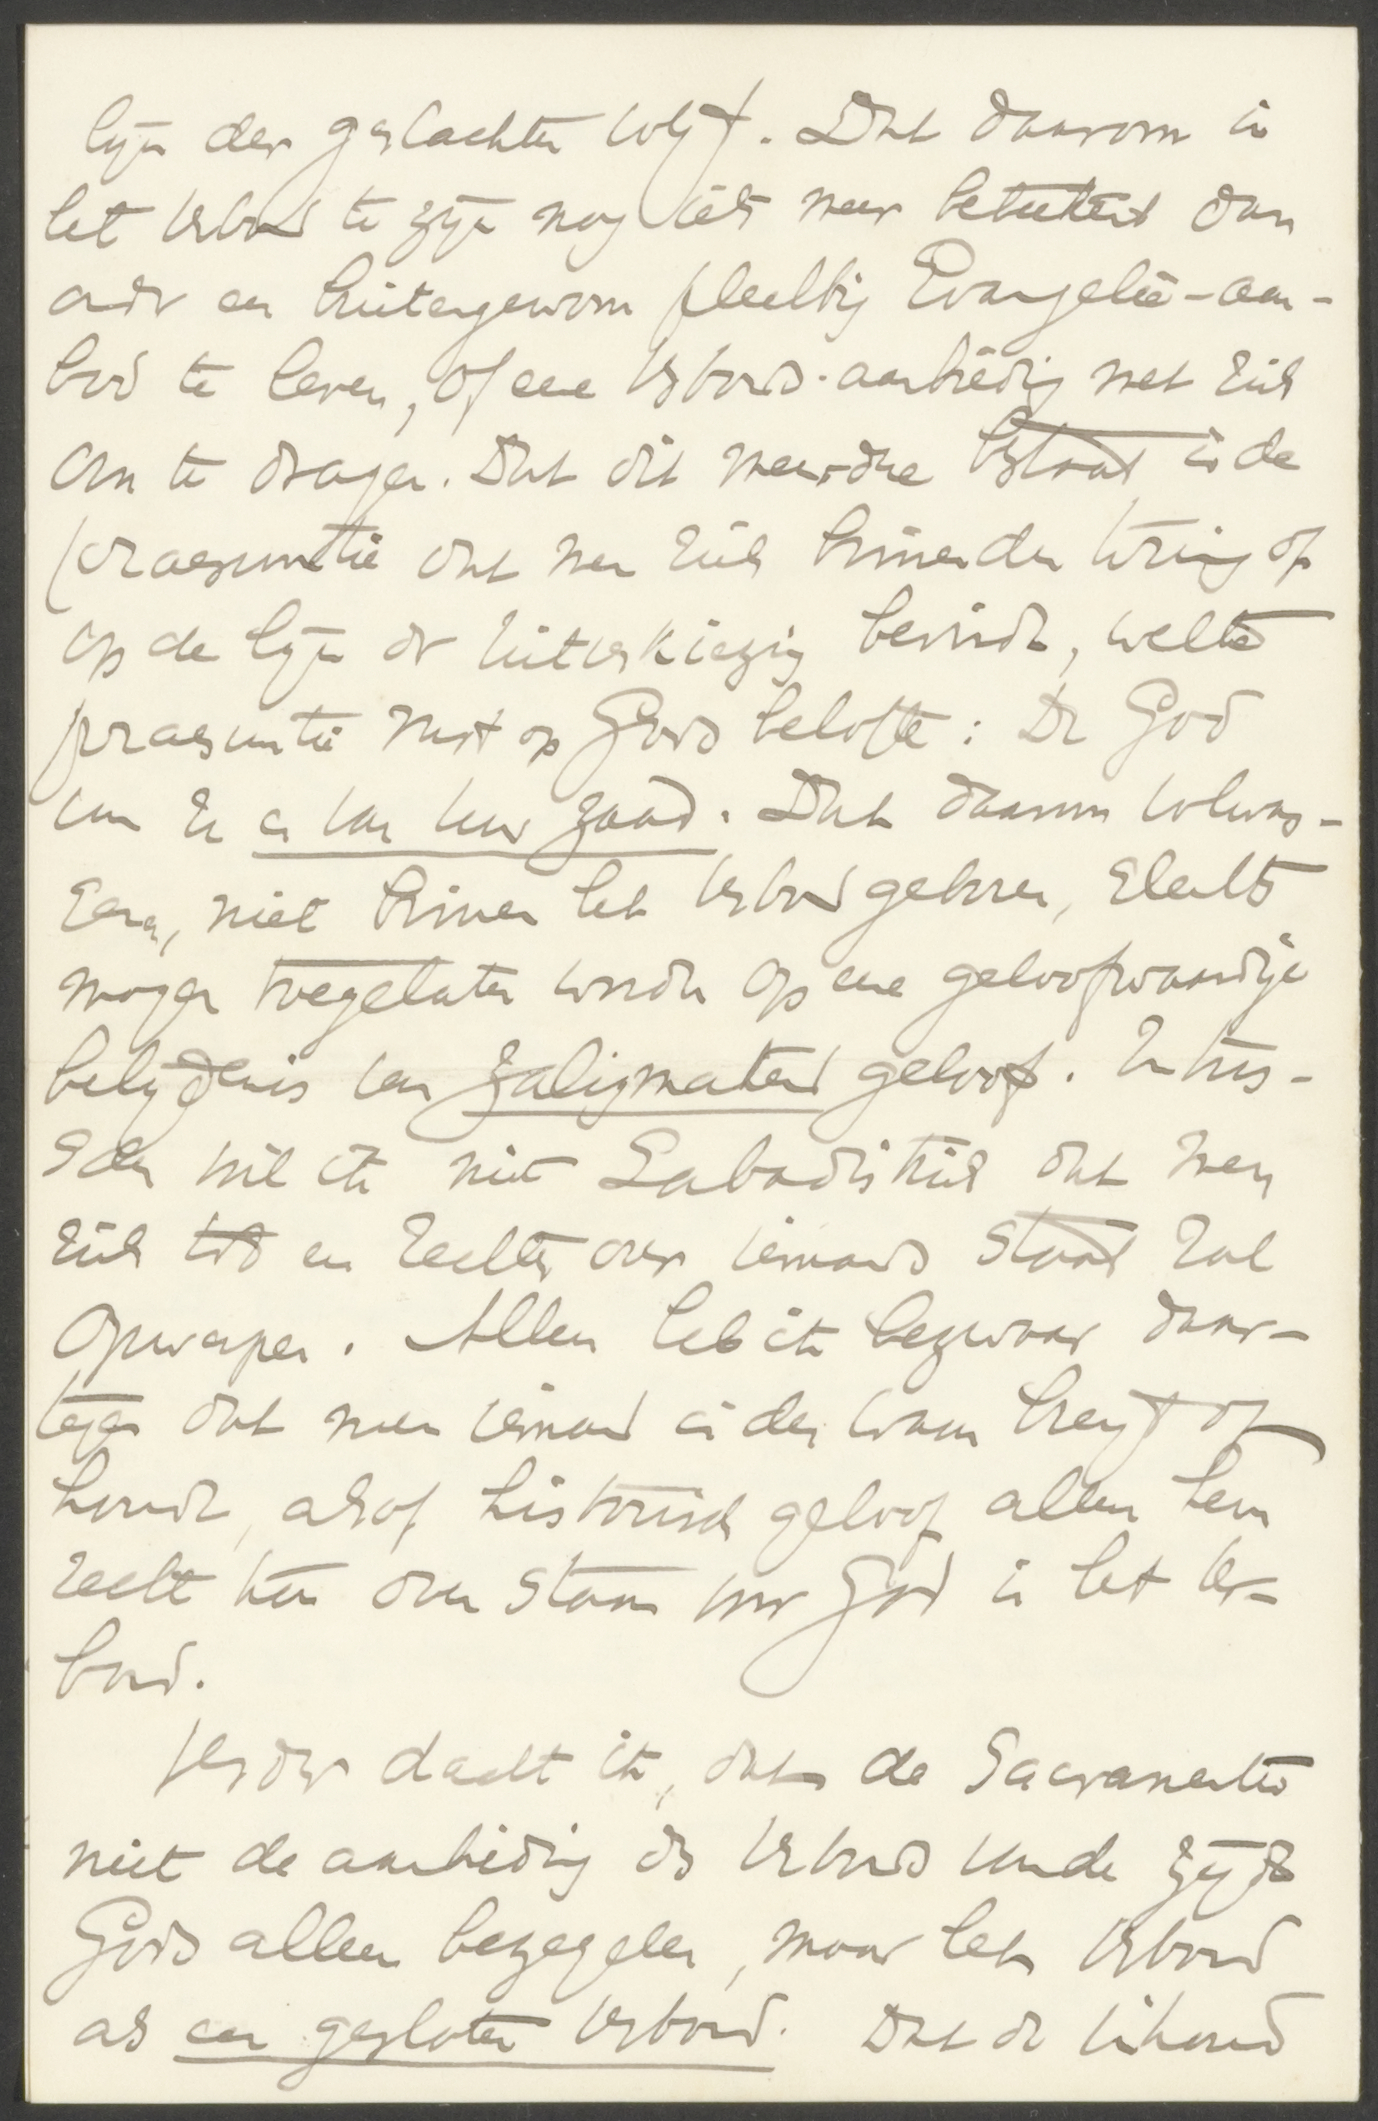 lijn der geslachten volgt. Dat daarom in
het Verbond te zijn nog iets meer beteekent dan
onder een buitengewoon plechtig Evangelie-aan-
bod te leven, of eene Verbonds-aanbieding met zich
om te dragen. Dat dit meerdere bestaat in de
praesumtie dat men zich binnen den kring of
op de lijn der uitverkiezing bevindt, welke
praesumtie rust op Gods belofte: De God
van U en van uw zaad. Dat daarom volwas-
senen, niet binnen het Verbond geboren, slechts
mogen toegelaten worden op eene geloofwaardige
belijdenis van zaligmakend geloof. Intus-
schen wil ik niet Labadistisch dat men
zich tot een rechter over iemands staat zal
opwerpen. Alleen heb ik bezwaar daar-
tegen dat men iemand in den waan brengt of
houdt, alsof historisch geloof alleen hem
recht kan doen staan voor God in het Ver-
bond.
Verder dacht ik, dat de Sacramenten
niet de aanbieding des Verbonds van de zijde
Gods alleen bezegelen, maar het Verbond
als een gesloten Verbond. Dat de inhoud